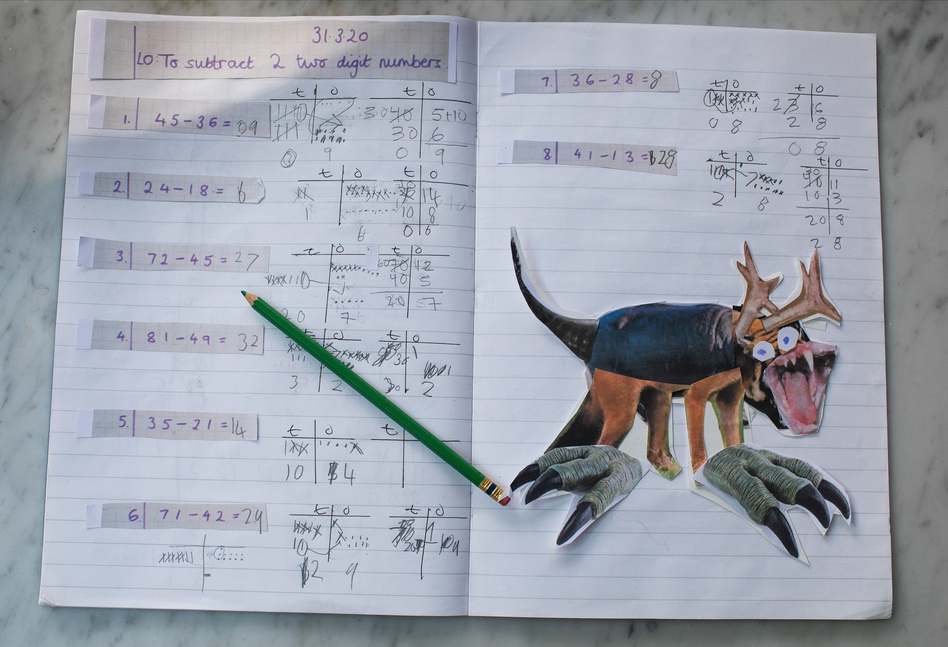 31.3.20
LO: To subtract 2 two digit numbers
1. 45-36=09
t o
t o
5+10
30 6
9 0 9
2. 24-18=6
t o
t o
14
10 8
6 0 6
3. 72-45=27
t o
t o
12
5
20 7
4. 81-49=32
3 2
2
5. 35-21=14
t o
t o
10 4
6. 71-42=29
t o
t o
2 9
7. 36-28=8
t o
t o
2 3 6
0 8 2 8
0 8
8. 41-13=28
t o
t o
30
11
10 3
2 8 20 8
2 8